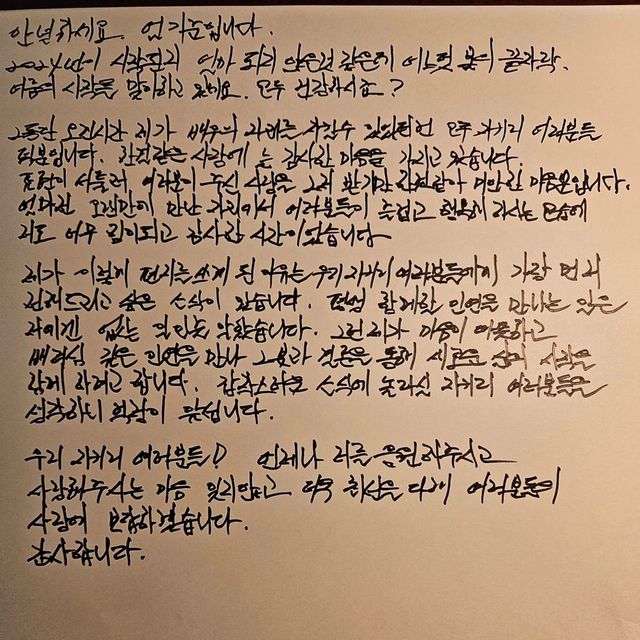 안녕하세요. 엄기준입니다.
2024년이 시작된지 얼마 되지 않은것 같은데 어느덧 봄의 끝자락,
여름의 시작을 맞이하고 있네요. 모두 건강하시죠?
그동안 오랜시간 제가 배우의 자리를 지킬수 있었던건 모두 자키리 여러분들
덕분입니다. 한결같은 사랑에 늘 감사한 마음을 가지고 있습니다.
표현이 서툴러 여러분이 주신 사랑을 그저 받기만 한것같아 미안한 마음뿐입니다.
얼마전 오랜만에 만난 자리에서 여러분들이 즐겁고 행복해 하시는 모습에
저도 너무 힘이되고 감사한 시간이었습니다
제가 이렇게 편지를 쓰게 된 이유는 우리 자키리 여러분들에게 가장 먼저
전해드리고 싶은 소식이 있습니다. 평생 함께할 인연을 만나는 일은
저에겐 없는 일인줄 알았습니다. 그런 제가 마음이 따뜻하고
배려심 깊은 인연을 만나 그분과 결혼을 통해 새로운 삶의 시작을
함께 하려고 합니다. 갑작스러운 소식에 놀라실 자키리 여러분들을
생각하니 걱정이 앞섭니다.
우리 자키리 여러분들! 언제나 저를 응원해주시고
사랑해주시는 마음 잊지않고 더욱 최선을 다해 여러분들의
사랑에 보답하겠습니다.
감사합니다.